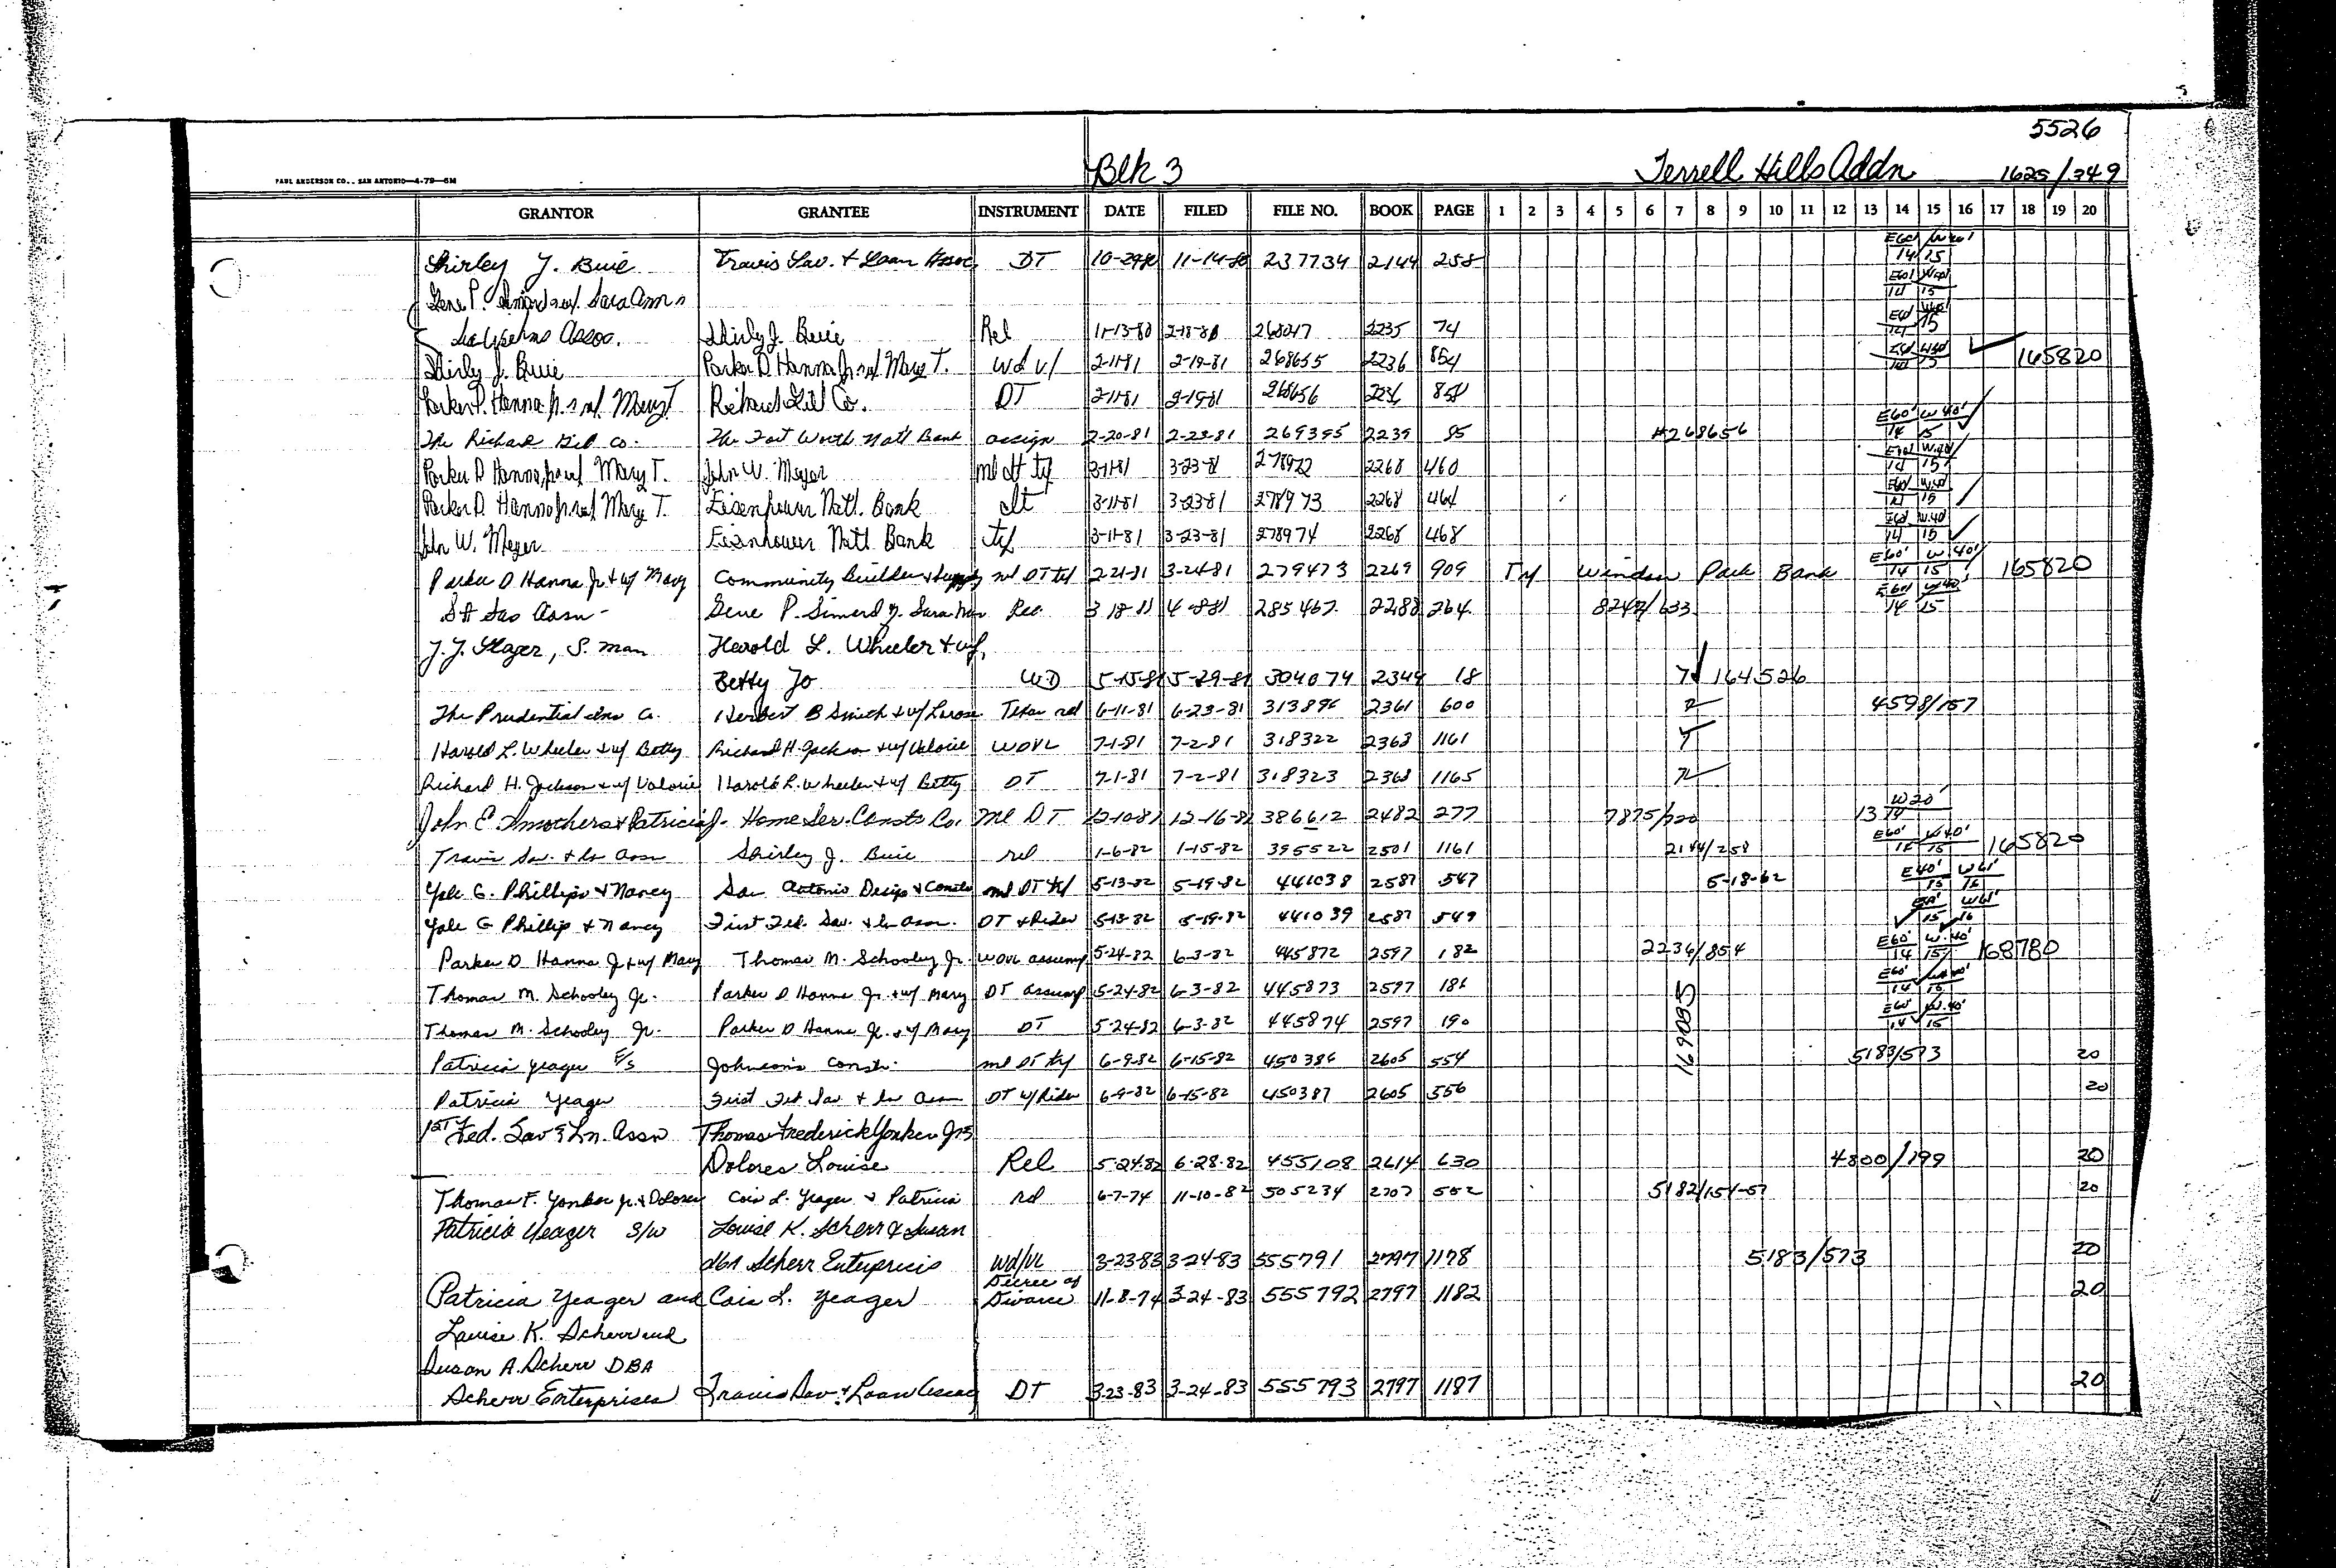 5526
Blk 3 Terrell Hills Addn 1625/349
PAUL ANDERSON CO., SAN ANTONIO—4-79—5M
GRANTOR GRANTEE INSTRUMENT DATE FILED FILE NO. BOOK PAGE 1 2 3 4 5 6 7 8 9 10 11 12 13 14 15 16 17 18 19 20
Shirley J. Buie Travis Sav. & Loan Assoc DT 10-29-80 11-14-80 237734 2144 258 E60' W40' 14 15
Gene P. Sara Ann E60' W40' 14 15
Assoc. Shirly J. Buie Rel 11-13-80 2-18-81 268047 2235 74 E60' W40' 14 15
Shirly J. Buie Parker D Hanna Jr wf Mary T. wd v/ 2-11-81 2-19-81 268655 2236 854 E60' W40' 14 15 165820
Parker D. Hanna Jr wf Mary T Richard Gill Co. DT 2-11-81 2-19-81 268656 2236 858
The Richard Gill Co. The Fort Worth Nat'l Bank assign 2-20-81 2-23-81 269395 2239 85 #268656 E60' W40' 14 15
Parker D Hanna Jr wf Mary T. John W. Meyer ml dt tf 3-11-81 3-23-81 278972 2268 460 E60' W.40' 14 15
Parker D. Hanna Jr wf Mary T. Eisenhower Natl. Bank dt 3-11-81 3-23-81 278973 2268 464 E60' W.40' 14 15
John W. Meyer Eisenhower Natl Bank tf 3-11-81 3-23-81 278974 2268 468 E60' W.40' 14 15
Parker D. Hanna Jr & w/ Mary Community Builders & Supply ml DT tf 2-21-81 3-24-81 279473 2269 909 Tf Windsor Park Bank E60' W40' 14 15 165820
SA Sav Assn Gene P. Simord Sara Ann Rel 3 18-81 4-8-81 285467 2288 264 E60' W40' 14 15
Harold L. Wheeler & wf,
Betty Jo WD 5-15-81 5-29-81 304074 2344 18 7 164526
The Prudential Ins Co. Herbert B Smith & w/ 6-11-81 6-23-81 2361 600 7 4598/157
Harold L. Wheeler & w/ Betty Richard H. Jackson & w/ Valorie WDVL 7-1-81 7-2-81 318322 2368 1161 7
Richard H. Jackson & w/ Valorie Harold L. Wheeler & w/ Betty DT 7-1-81 7-2-81 318323 2368 1165 7
John E. Smothers & Patricia J. Home Ser. Consts Co. ml DT 12-10-81 12-16-81 386612 2482 277 7875/720 13 W20' 14
Travis Sav. & Ln Assn Shirley J. Buie rel 1-6-82 1-15-82 395522 2501 1161 2144/258 E60' W40' 14 15 165820
Yale G. Phillips & Nancy San Antonio Design & Consts ml DT tf 5-13-82 5-19-82 441038 2587 547 5-18-82 E40' W61' 15 16
Yale G Phillips & Nancy First Fed. Sav. & Ln Assn. DT & Rider 5-13-82 5-19-82 441039 2587 549 W61' 15 16
Parker D Hanna Jr & w/ Mary Thomas M. Schooley Jr. WDVL assump 5-24-82 6-3-82 445872 2597 182 2236/854 E60' W.40' 14 15 168780
Thomas M. Schooley Jr. Parker D Hanna Jr. & w/ Mary DT assump 5-24-82 6-3-82 445873 2597 186 E60' W40' 14 15
Thomas M. Schooley Jr. Parker D Hanna Jr. & w/ Mary DT 5-24-82 6-3-82 445874 2597 190 169085 E60' W.40' 14 15
Patricia Yeager F/S Johnson's Constr. ml DT tf 6-9-82 6-15-82 450386 2605 554 5183/573 20
Patricia Yeager First Fed Sav & Ln Assn DT w/ Rider 6-9-82 6-15-82 450387 2605 556 20
1ST Fed. Sav & Ln. Assn Thomas Frederick Yonker Jr &
Dolores Louise Rel 5-24-82 6-28-82 455108 2614 630 4800/199 20
Thomas F. Yonker Jr. & Dolores Cois L. Yeager & Patricia rel 6-7-74 11-10-82 505234 2707 552 5182/154-57 20
Patricia Yeager S/W Louise K. Scherr & Susan
dba Scherr Enterprises Wd/VL 3-23-83 3-24-83 555791 2797 1178 5183/573 20
Patricia Yeager and Cois L. Yeager Decree of Divorce 11-8-74 3-24-83 555792 2797 1182 20
Louise K. Scherr and
Susan A. Scherr DBA
Scherr Enterprises Travis Sav. & Loan Assoc DT 3-23-83 3-24-83 555793 2797 1187 20